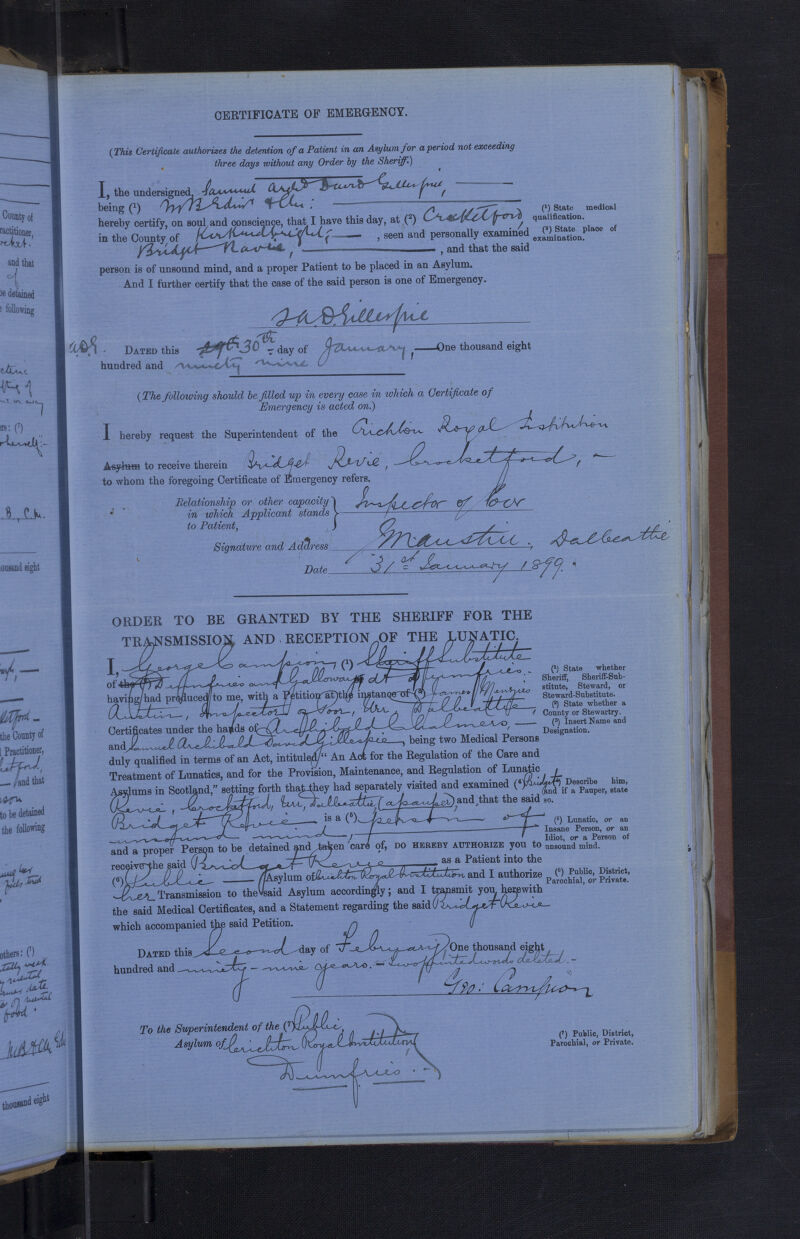 CERTIFICATE OF EMERGENCY.
(This Certificate authorizes the detention of a Patient in an Asylum for a period not exceeding
three days without any Order by the Sheriff.)
I, the undersigned, Samuel Archd David Gillespie,
being (¹) M B Edin & Cm :
hereby certify, on soul and conscience, that I have this day, at (²) Crocketford
in the County of Kirkcudbright, , seen and personally examined
Bridget Revie, , and that the said
person is of unsound mind, and a proper Patient to be placed in an Asylum.
And I further certify that the case of the said person is one of Emergency.
(¹) State medical
qualification.
(²) State place of
examination.
S A D Gillespie
DATED this 29th 30th day of January, One thousand eight
hundred and ninety nine
(The following should be filled up in every case in which a Certificate of
Emergency is acted on.)
I hereby request the Superintendent of the Crichton Royal Institution
Asylum to receive therein Bridget Revie, Crocketford,
to whom the foregoing Certificate of Emergency refers.
Relationship or other capacity
in which Applicant stands
to Patient,
Inspector of Poor
Signature and Address Dalbeattie
Date 31st January 1899.
ORDER TO BE GRANTED BY THE SHERIFF FOR THE
TRANSMISSION AND RECEPTION OF THE LUNATIC.
I, George Campion, (¹) Sheriff Substitute
of the (²) Dumfries and Galloway at Dumfries.
having had produced to me, with a Petition at the instance of (³) James Menzies
Austin, Inspector of Poor, Urr, Dalbeattie,
Certificates under the hands of Archibald Chalmers,
and Samuel Archibald David Gillespie, being two Medical Persons
duly qualified in terms of an Act, intituled, "An Act for the Regulation of the Care and
Treatment of Lunatics, and for the Provision, Maintenance, and Regulation of Lunatic
Asylums in Scotland," setting forth that they had separately visited and examined (⁴) Bridget
Revie, Crocketford, Urr, Dalbeattie, (a pauper) and that the said
Bridget Revie is a (⁵) person of
unsound mind,
and a proper Person to be detained and taken care of, DO HEREBY AUTHORIZE you to
receive the said Bridget Revie as a Patient into the
(⁶) Public Asylum of Crichton Royal Institution and I authorize
her Transmission to the said Asylum accordingly; and I transmit you herewith
the said Medical Certificates, and a Statement regarding the said Bridget Revie
which accompanied the said Petition.
(¹) State whether
Sheriff, Sheriff-Sub-
stitute, Steward, or
Steward-Substitute.
(²) State whether a
County or Stewartry.
(³) Insert Name and
Designation.
(⁴) Describe him,
and if a Pauper, state
so.
(⁵) Lunatic, or an
Insane Person, or an
Idiot, or a Person of
unsound mind.
(⁶) Public, District,
Parochial, or Private.
DATED this Second day of February One thousand eight
hundred and ninety-nine years. - two printed words deleted. -
Geo: Campion
To the Superintendent of the (⁷) Public
Asylum of Crichton Royal Institution,
Dumfries.
(⁷) Public, District,
Parochial, or Private.